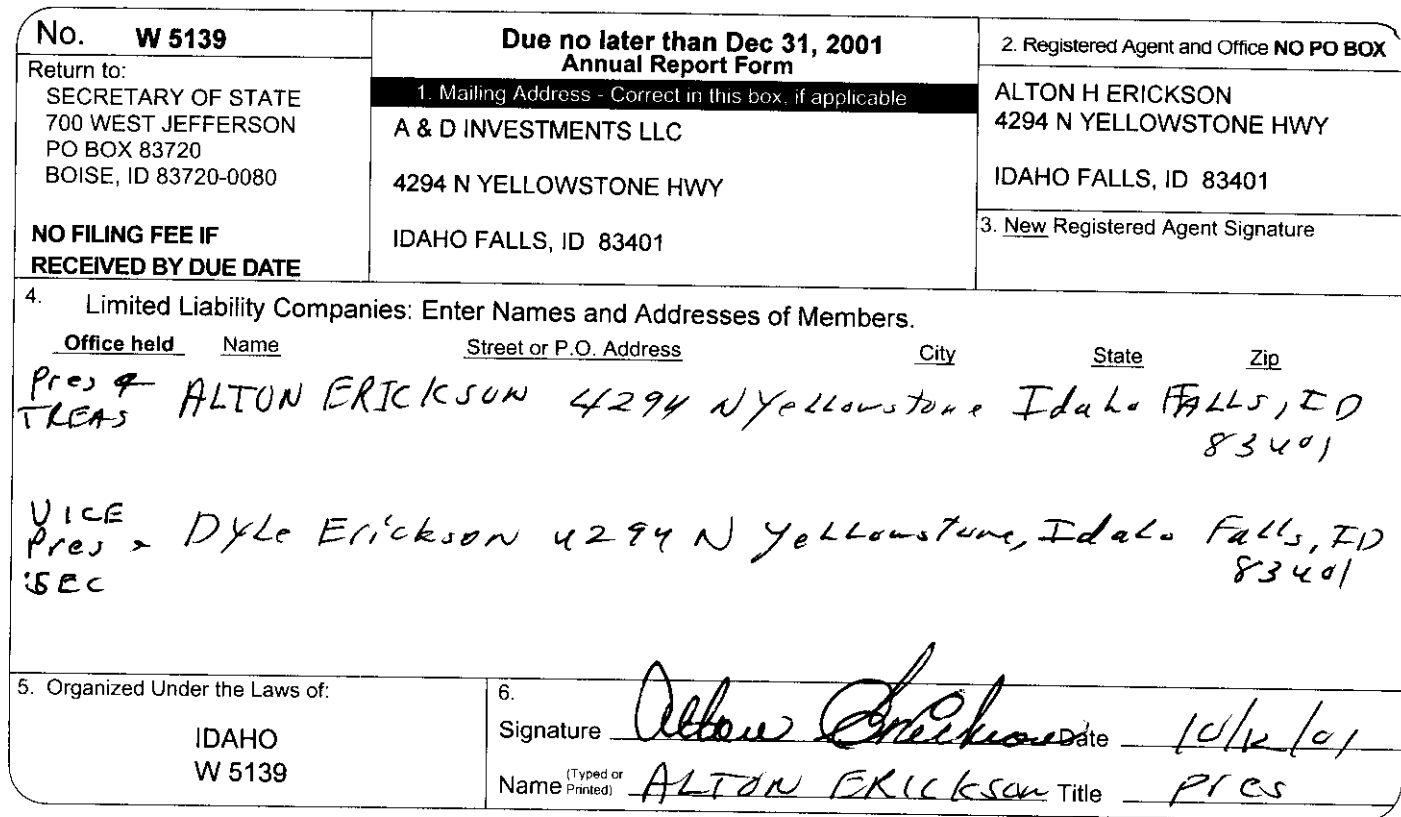 No. W 5139
Return to:
SECRETARY OF STATE
700 WEST JEFFERSON
PO BOX 83720
BOISE, ID 83720-0080
NO FILING FEE IF
RECEIVED BY DUE DATE
Due no later than Dec 31, 2001
Annual Report Form
1. Mailing Address - Correct in this box, if applicable
A & D INVESTMENTS LLC
4294 N YELLOWSTONE HWY
IDAHO FALLS, ID 83401
2. Registered Agent and Office NO PO BOX
ALTON H ERICKSON
4294 N YELLOWSTONE HWY
IDAHO FALLS, ID 83401
3. New Registered Agent Signature
4. Limited Liability Companies: Enter Names and Addresses of Members.
Office held Name Street or P.O. Address City State Zip
Pres & TREAS ALTON ERICKSON 4294 N Yellowstone Idaho FALLS, ID
83401
VICE Pres & SEC DYLe Erickson 4294 N Yellowstone, Idaho Falls, ID
83401
5. Organized Under the Laws of:
IDAHO
W 5139
6.
Signature Alton Erickson Date 10/12/01
Name (Typed or Printed) ALTON ERICKSON Title pres